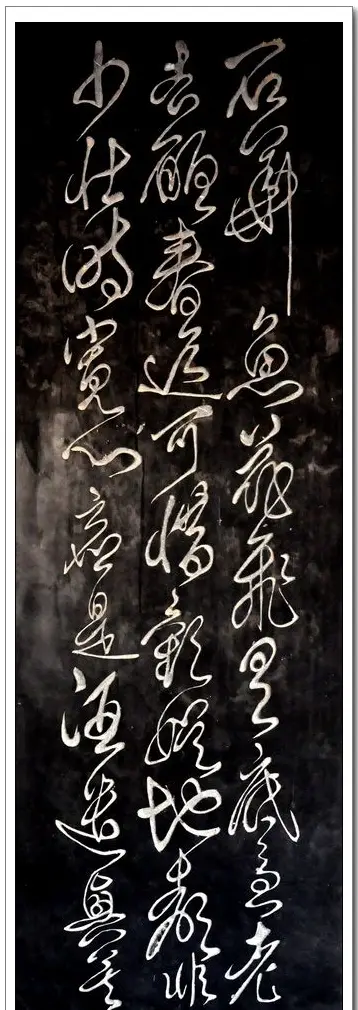 石花飛有底急老
去願春遲可惜歡娛地都非
少壯時寬心應是酒遣興莫